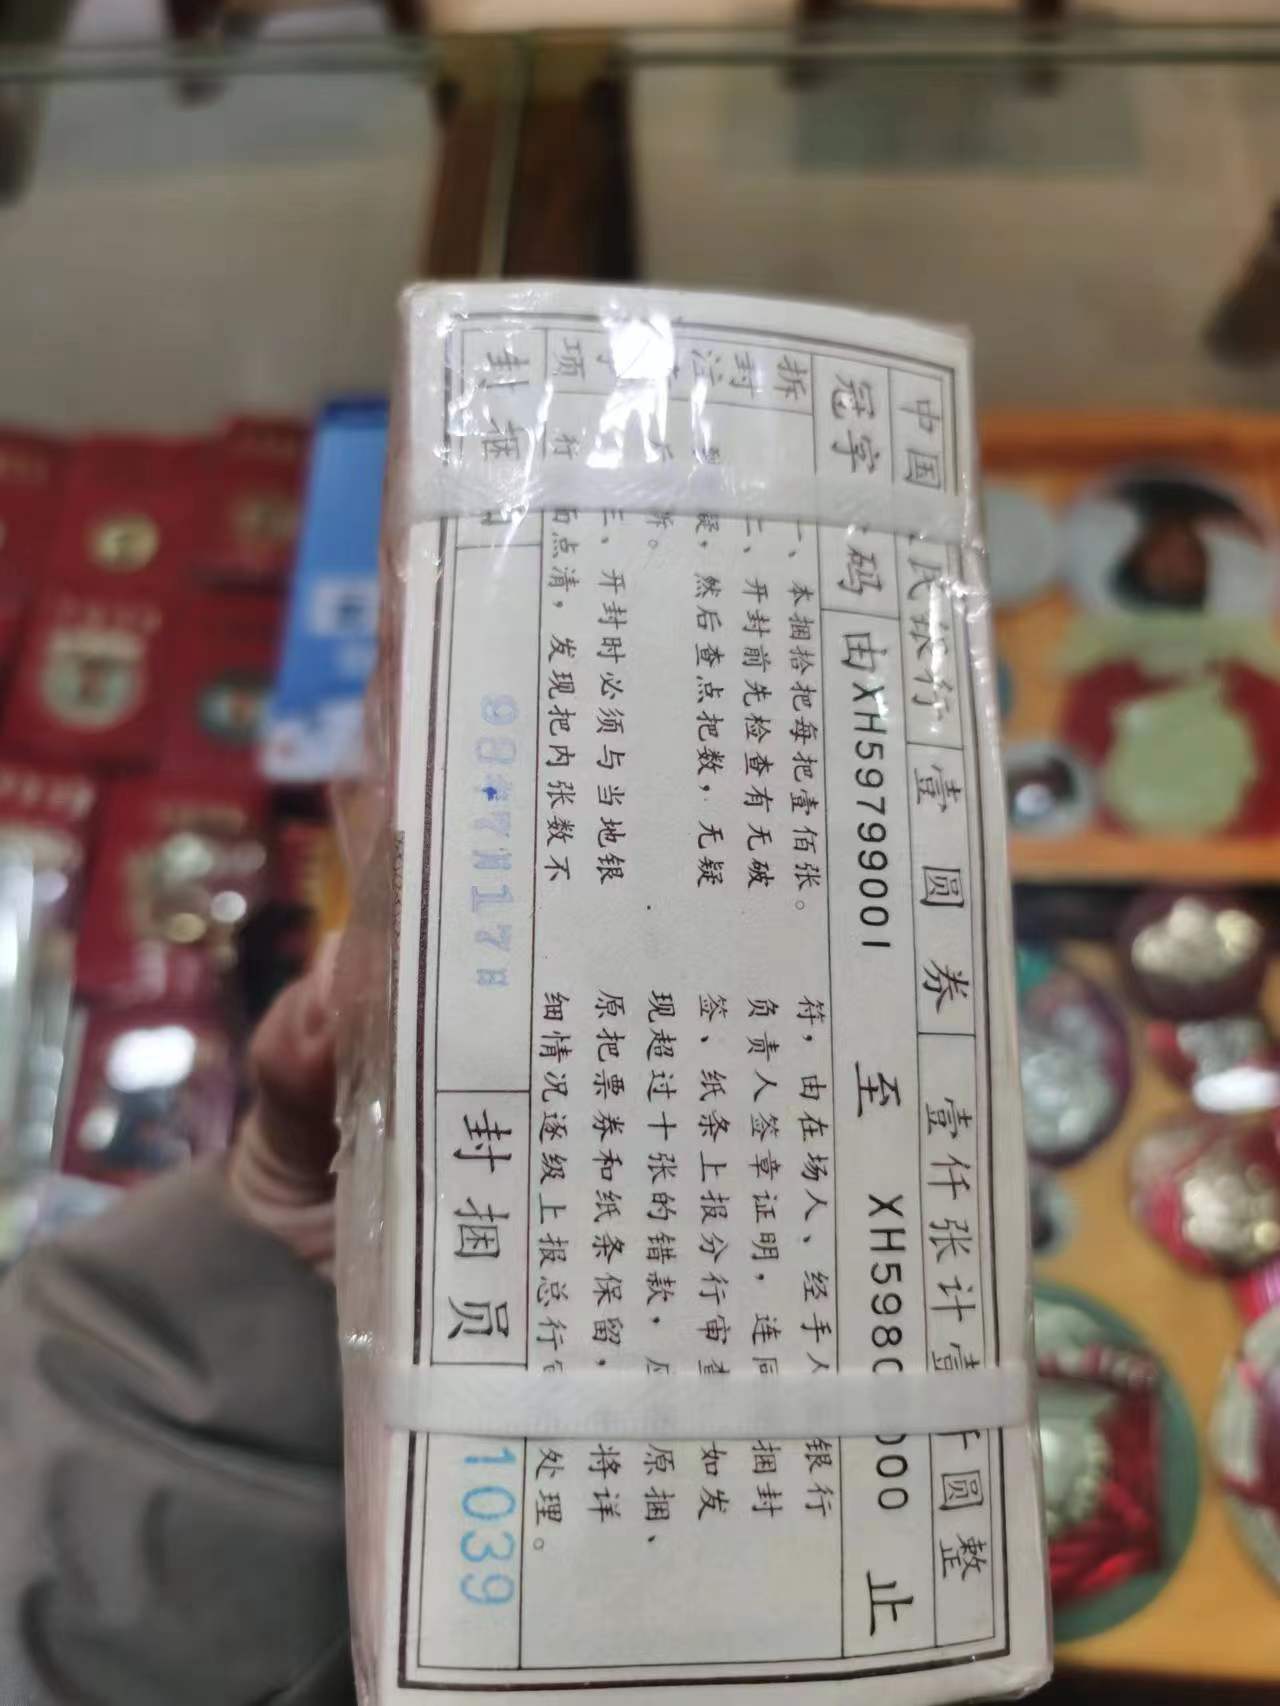 中国 民银行 壹圆券 壹仟张计壹 千圆整
冠字 码 由XH59799001 至 XH598 000 止
拆封注 项
一、本捆拾把每把壹佰张。
二、开封前先检查有无破
疑，然后查点把数，无疑
拆。
三、开封时必须与当地银
行
面点清，发现把内张数不
符，由在场人、经手人 银行
负责人签章证明，连同 捆封
签、纸条上报分行审查 如发
现超过十张的错款， 原捆、
原把票券和纸条保留， 将详
细情况逐级上报总行 处理。
封捆 98年7月17日 封捆员 1039